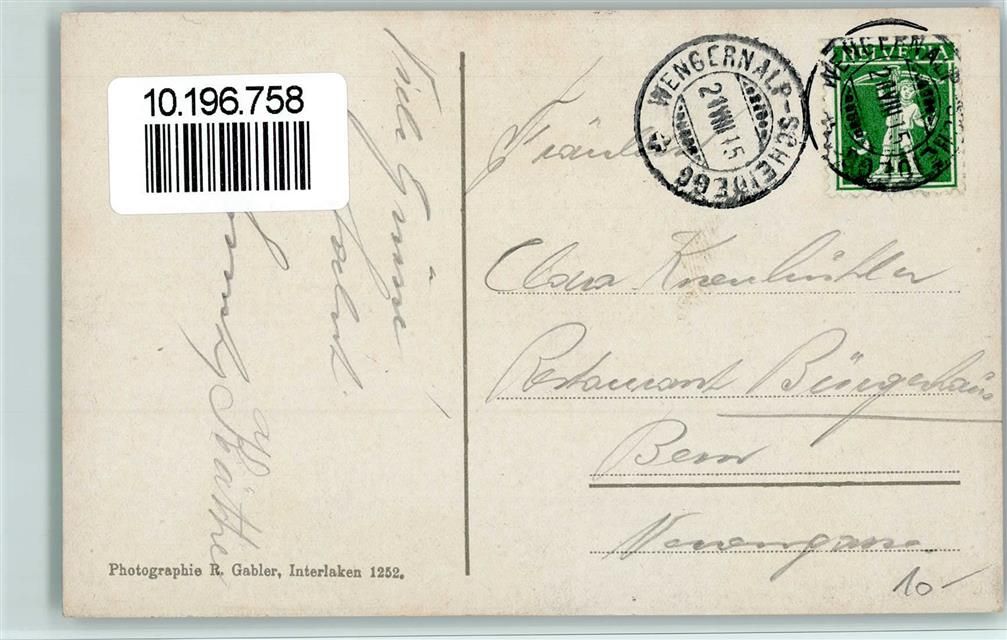 10.196.758
Viele Grüsse
WENGERNALP-SCHEIDEGG
21 VIII 15
HELVETIA
WENGERNALP-SCHEIDEGG
Fräulein
Clara
Restaurant Bürgerhaus
Bern
Neuengasse
Photographie R. Gabler, Interlaken 1252.
10-